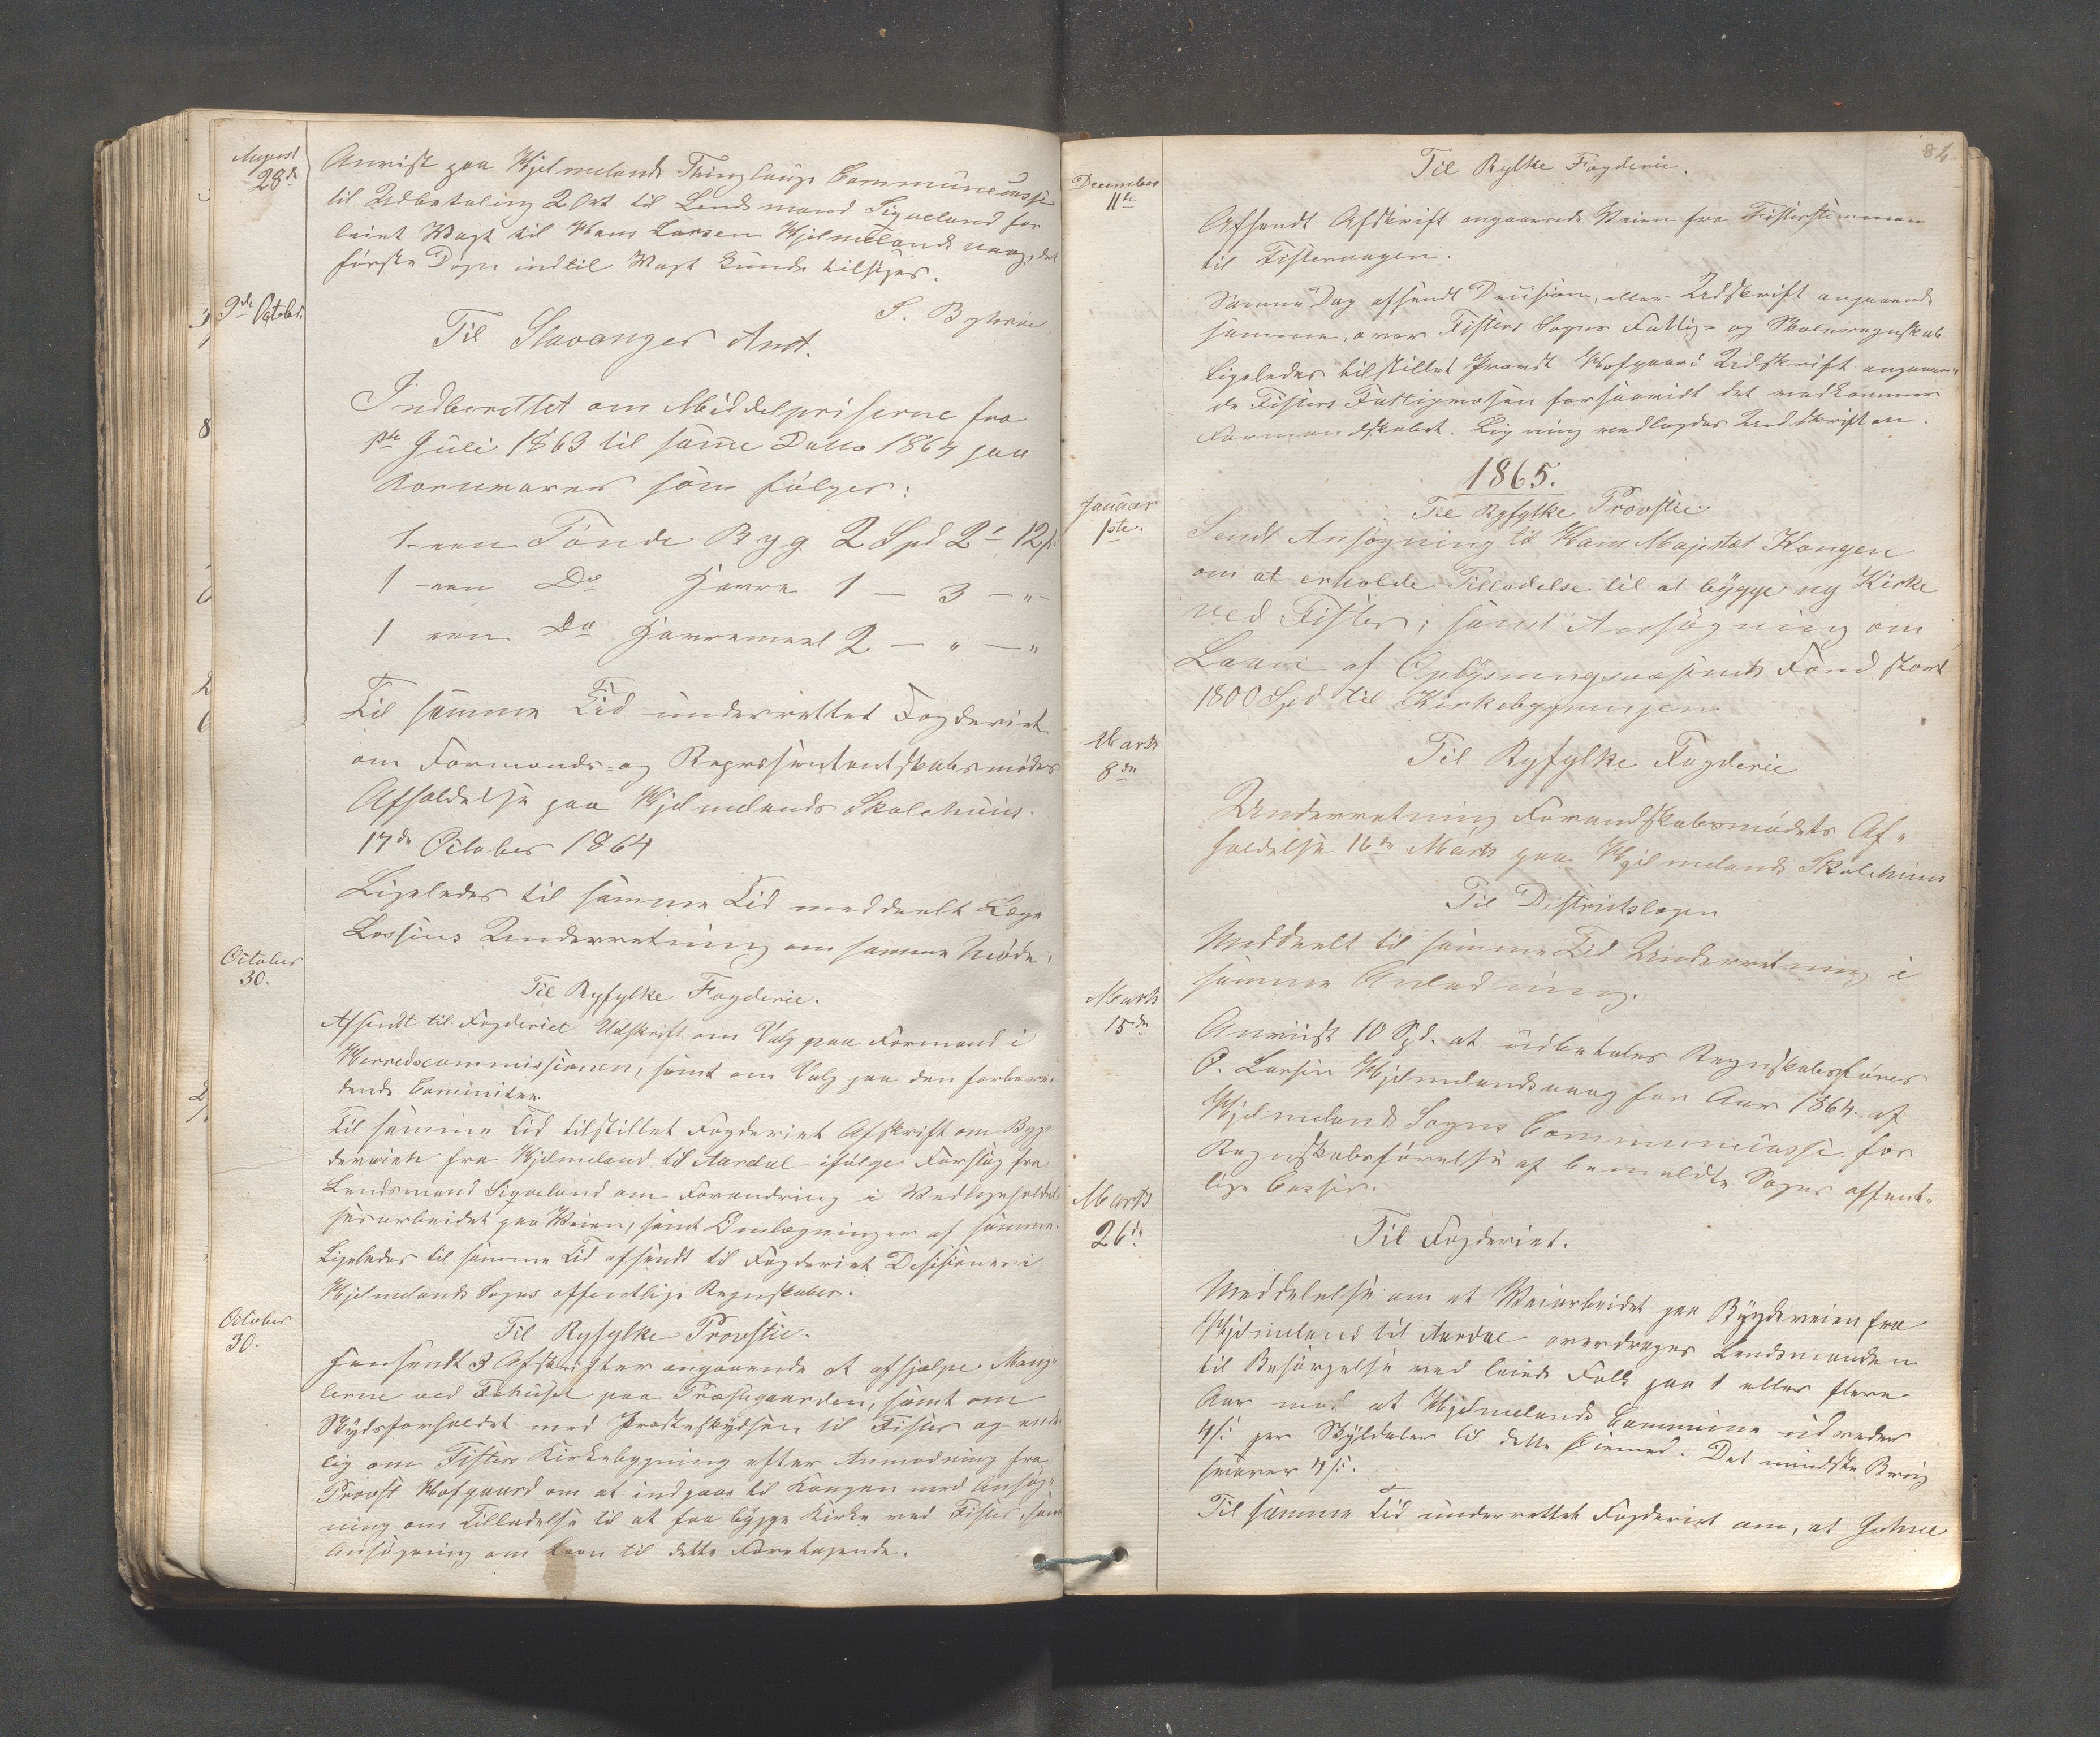 August
28de
Anvist paa Hjelmelands Thinglaugs Communecasse
til Udbetaling 2 Ort til Lendsmand Sigveland for
leiet Vagt til Hans Larsen Hjelmelandsvaag, det
første Døgn indtil Vagt kunde tilsiges.
S.
9de Octobr.
Til Stavanger Amt.
Indberettet om Middelpriserne fra
1ste Juli 1863 til samme Datto 1864 paa
Kornvarer som følger:
1 een Tønde Byg 2 Spd 2 " 12 s
1 een Do Havre 1 — 3 — "
1 een Do Havremeel 2 — " — "
Til samme Tid underrettet Fogderiet
om Formands- og Repræsentantskabsmødes
Afholdelse paa Hjelmelands Skolehuus
17de October 1864
Ligeledes til samme Tid meddeelt Læge
Lossius Underretning om samme Møde.
October
30.
Til Ryfylke Fogderie.
Afsendt til Fogderiet Udskrift om Valg paa Formand i
Herredscommissionen, samt om Valg paa den forbere-
dende Comimitee
Til samme Tid tilstillet Fogderiet Afskrift om Byg-
deveien fra Hjelmeland til Aardal ifølge Forslag fra
Lendsmand Sigveland om Forandring i Vedligeholdel-
sesarbeidet paa Veien, samt Omlægninger af samme.
Ligeledes til samme Tid afsendt til Fogderiet Desisioner i
Hjelmelands Sogns offentlige Regnskaber.
October
30.
Til Ryfylke Provstie.
Hensendt 3 Afskrifter angaaende at afhjælpe Mang-
lerne ved Fæhuset paa Præstegaarden, samt om
Skydsforholdet med Præsteskydsen til Fister og ende-
lig om Fisters Kirkebygning efter Anmodning fra
Provst Hofgaard om at indgaae til Kongen med Ansøg-
ning om Tilladelse til at faa bygge Kirke ved Fister, samt
Ansøgning om Laan til dette Foretagende.
84.
December
11te
Til Rylke Fogderie.
Afsendt Afskrift angaaende Veien fra Fisterstemmen
til Fistervaagen.
Samme Dag afsendt Decision, eller Udskrift angaaende
samme, over Fisters Sogns Fattig- og Skoleregnskab
Ligeledes tilstillet Provst Hofgaard Udskrift angaaen-
de Fisters Fattigvæsen forsaavidt det vedkommer
Formandskabet. Ligning vedlagdes Udskriften.
1865.
Januar
1ste.
Til Ryfylke Provstie
Sendt Ansøgning til Hans Majestæt Kongen
om at erholde Tilladelse til at bygge ny Kirke
ved Fister; samt Ansøgning om
Laan af Oplysningsvæsenets Fond stort
1800 Spd til Kirkebygningen
Marts
8de
Til Ryfylke Fogderie
Underretning Forandskabsmødets Af-
holdelse 16de Marts paa Hjelmelands Skolehuus
Til Districtslægen
Meddeelt til samme Tid Underretning i
samme Anledning.
Marts
15de
Anviist 10 Spd. at udbetales Regnskabsfører
O. Larsen Hjelmelandsvaag for Aar 1864 af
Hjelmelands Sogns Communecasse for
Regnskabsførelse af bemeldte Sogns offent-
lige Casser.
Marts
26de
Til Fogderiet.
Meddelelse om at Veiarbeidet paa Bygdeveien fra
Hjelmeland til Aardal overdrages Lendsmanden
til Besørgelse ved leiede Folk paa 1 eller flere
Aar mod at Hjelmelands Commune udreder
4 s per Skyldaler til dette Øiemed. Det mindste Brug
svarer 4 s.
Til samme Tid underrettet Fogderiet om, at Johne